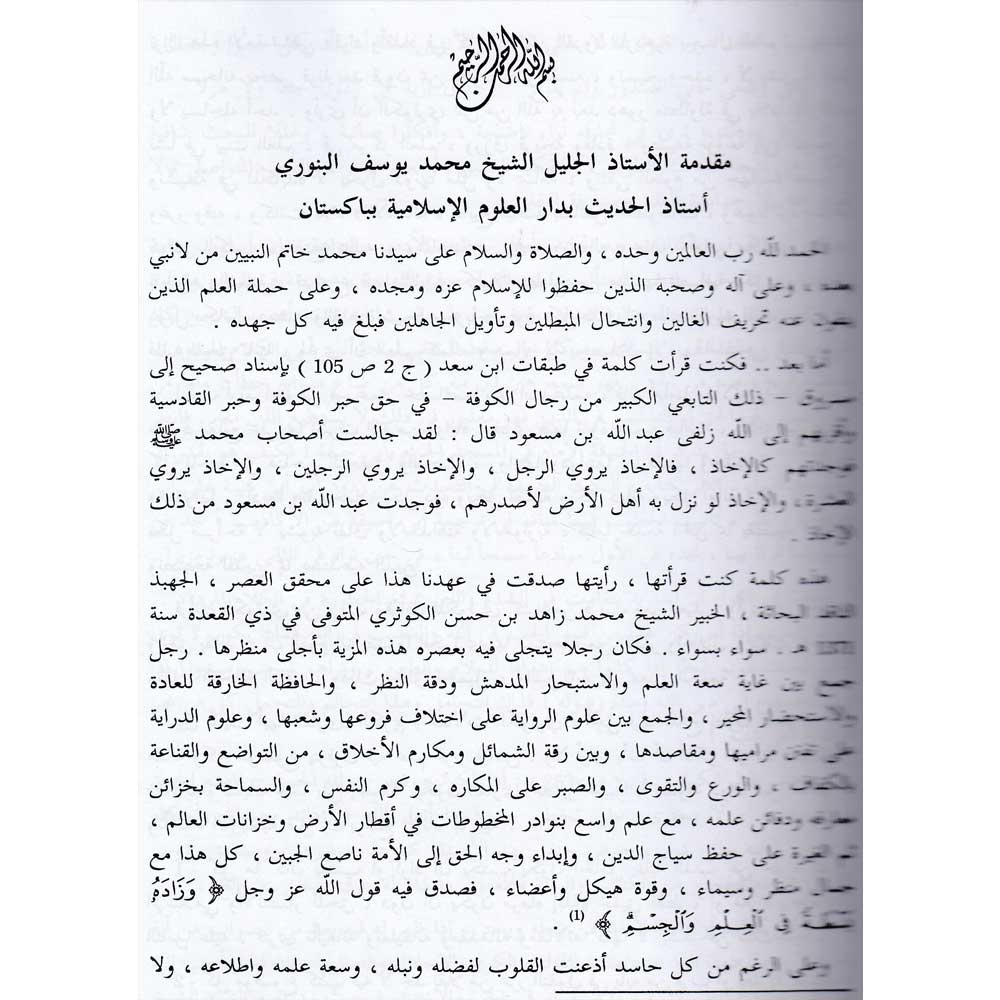 بسم الله الرحمن الرحيم
مقدمة الأستاذ الجليل الشيخ محمد يوسف البنوري
أستاذ الحديث بدار العلوم الإسلامية بباكستان
الحمد لله رب العالمين وحده ، والصلاة والسلام على سيدنا محمد خاتم النبيين من لانبي
بعده ، وعلى آله وصحبه الذين حفظوا للإسلام عزه ومجده ، وعلى حملة العلم الذين
ينفون عنه تحريف الغالين وانتحال المبطلين وتأويل الجاهلين فبلغ فيه كل جهده .
أما بعد .. فكنت قرأت كلمة في طبقات ابن سعد ( ج 2 ص 105 ) بإسناد صحيح إلى
مسروق – ذلك التابعي الكبير من رجال الكوفة – في حق حبر الكوفة وحبر القادسية
وأقربهم إلى الله زلفى عبد الله بن مسعود قال : لقد جالست أصحاب محمد ﷺ
فوجدتهم كالإخاذ ، فالإخاذ يروي الرجل ، والإخاذ يروي الرجلين ، والإخاذ يروي
العشرة ، والإخاذ لو نزل به أهل الأرض لأصدرهم ، فوجدت عبد الله بن مسعود من ذلك
الإخاذ .
هذه كلمة كنت قرأتها ، رأيتها صدقت في عهدنا هذا على محقق العصر ، الجهبذ
الناقد البحاثة ، الخبير الشيخ محمد زاهد بن حسن الكوثري المتوفى في ذي القعدة سنة
هـ . سواء بسواء . فكان رجلا يتجلى فيه بعصره هذه المزية بأجلى منظرها . رجل
جمع بين غاية سعة العلم والاستبحار المدهش ودقة النظر ، والحافظة الخارقة للعادة
والاستحضار المحير ، والجمع بين علوم الرواية على اختلاف فروعها وشعبها ، وعلوم الدراية
على تفنن مراميها ومقاصدها ، وبين رقة الشمائل ومكارم الأخلاق ، من التواضع والقناعة
بالكفاف ، والورع والتقوى ، والصبر على المكاره ، وكرم النفس ، والسماحة بخزائن
ودفائن علمه ، مع علم واسع بنوادر المخطوطات في أقطار الأرض وخزانات العالم ،
ثم الغيرة على حفظ سياج الدين ، وإبداء وجه الحق إلى الأمة ناصع الجبين ، كل هذا مع
جمال منظر وسيماء ، وقوة هيكل وأعضاء ، فصدق فيه قول الله عز وجل ﴿ وَزَادَهُۥ
بَسْطَةً فِى ٱلْعِلْمِ وَٱلْجِسْمِ ﴾ (1) .
وعلى الرغم من كل حاسد أذعنت القلوب لفضله ونبله ، وسعة علمه واطلاعه ، ولا